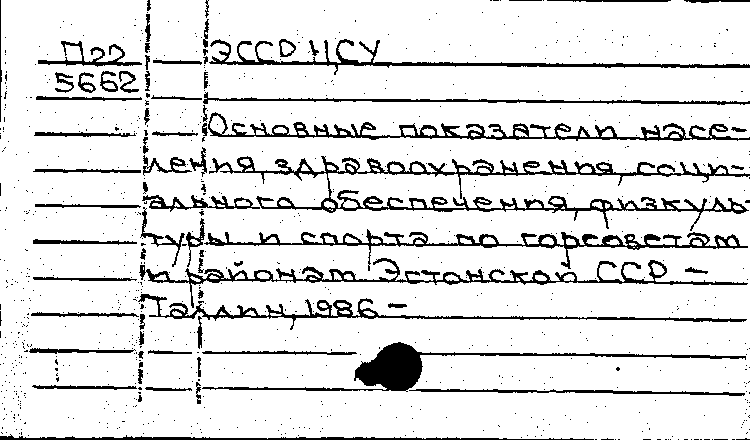 П22 ЭССР ЦСУ
5662
Основные показатели насе-
ления, здравоохранения, соци-
ального обеспечения, физкуль-
туры и спорта по горсоветам
и районам Эстонской ССР –
Таллин, 1986 –